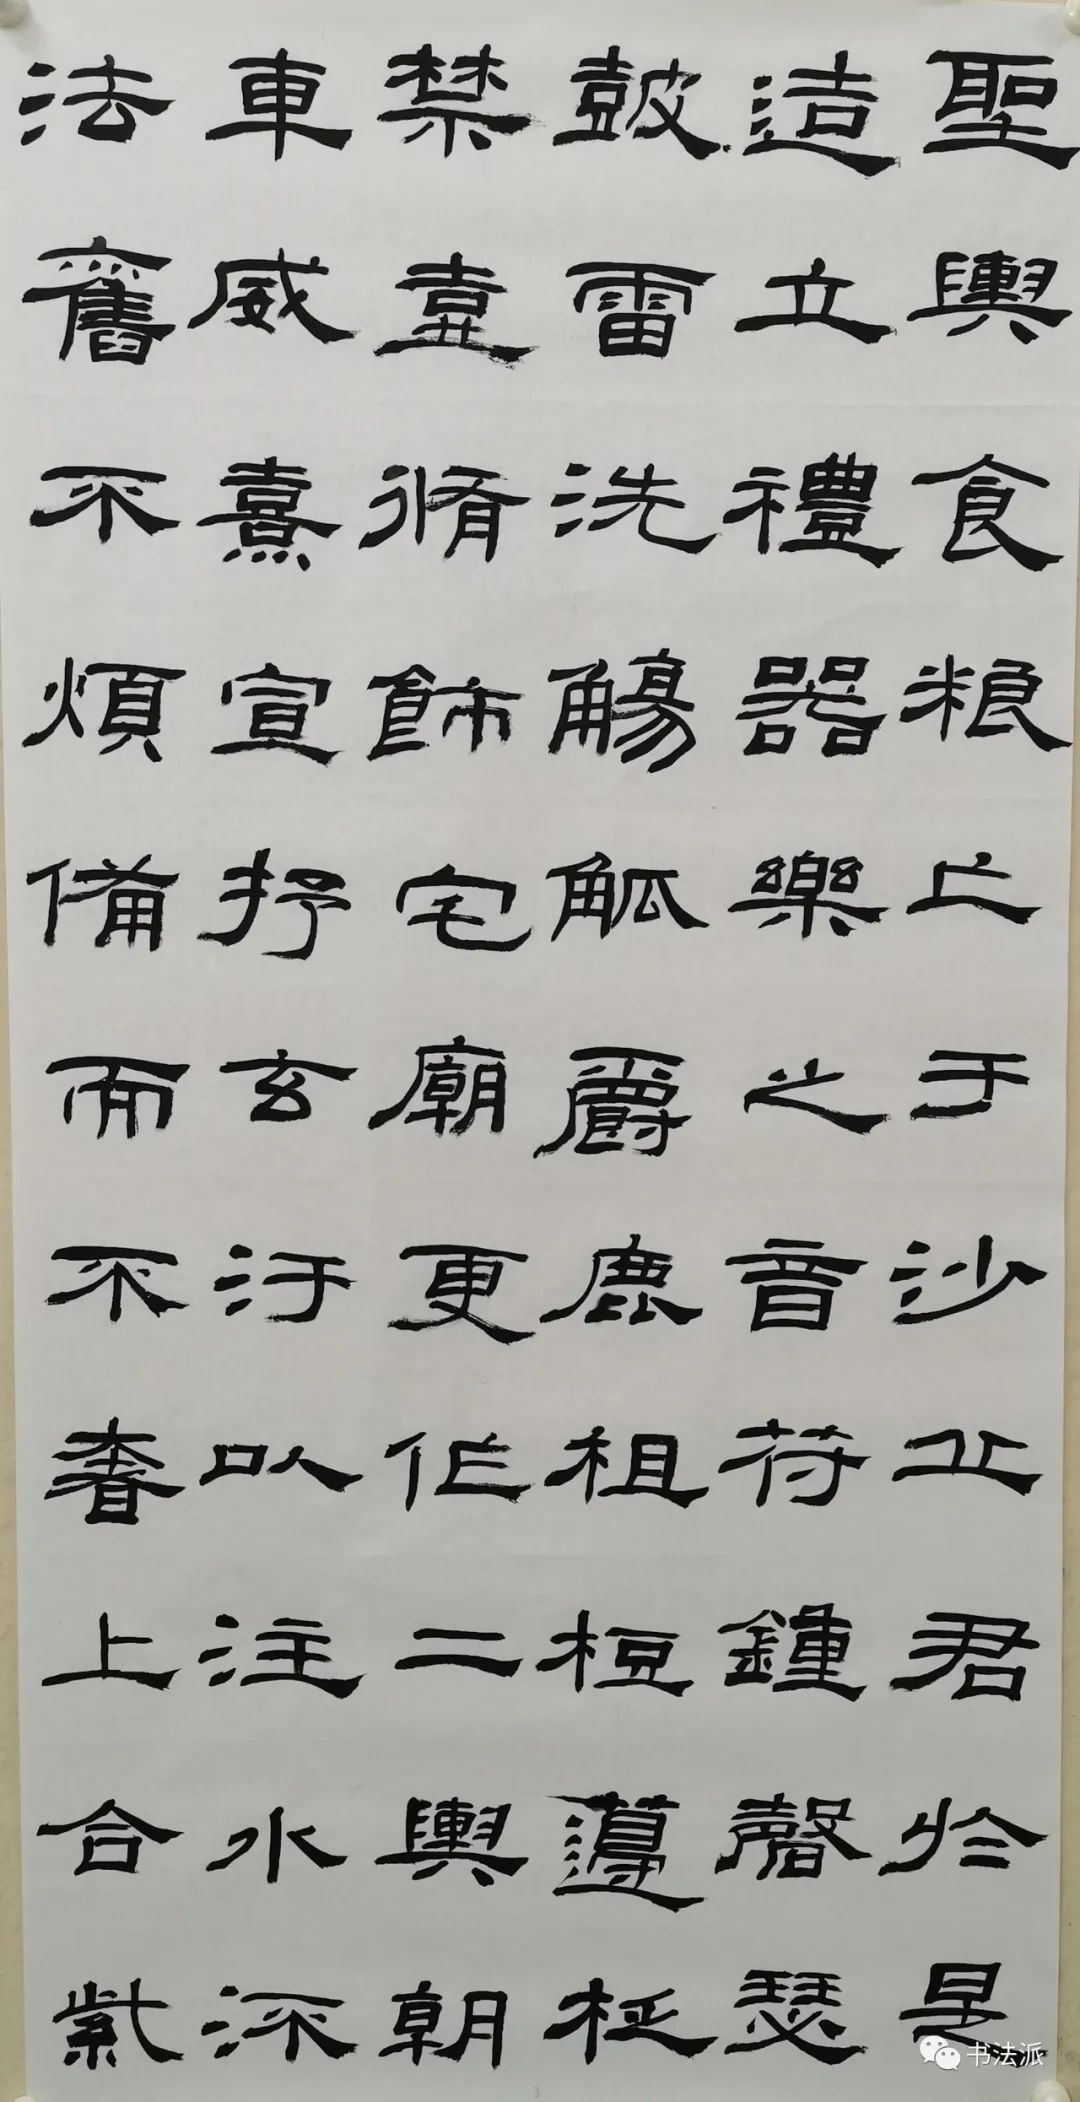 聖輿食粮亡于沙丘君於是
造立禮器樂之音符鍾磬瑟
鼓雷洗觴觚爵鹿柤梪籩柉
禁壺脩飾宅廟更作二輿朝
車威熹宣抒玄汙以注水流
法舊不煩備而不奢上合紫
书法派